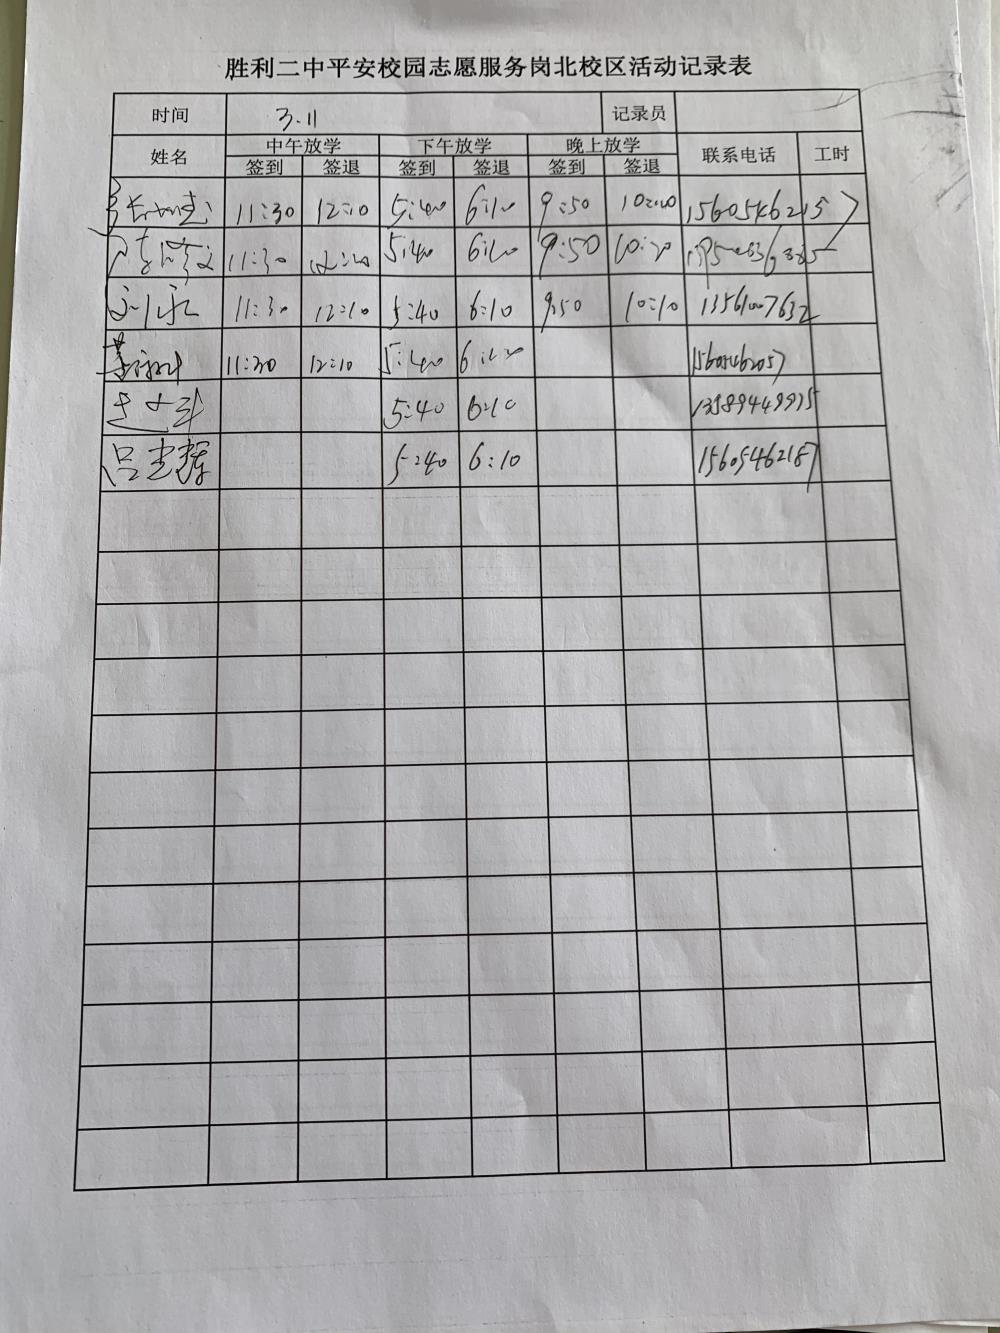 胜利二中平安校园志愿服务岗北校区活动记录表
时间 3.11 记录员
姓名 中午放学 下午放学 晚上放学 联系电话 工时
签到 签退 签到 签退 签到 签退
11:30 12:10 5:40 6:10 9:50 10:20
11:30 12:20 5:40 6:20 9:50 10:20
刘永 11:30 12:10 5:40 6:10 9:50 10:10 13561007632
11:30 12:10 5:40 6:20 15605462057
5:40 6:10 13589449975
吕忠辉 5:40 6:10 15605462187